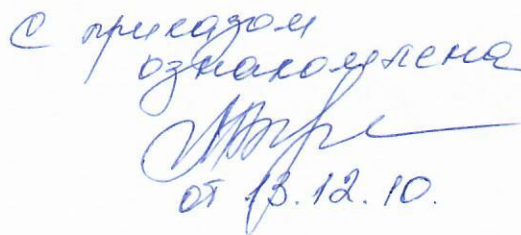 С приказом
ознакомлена
от 13.12.10.